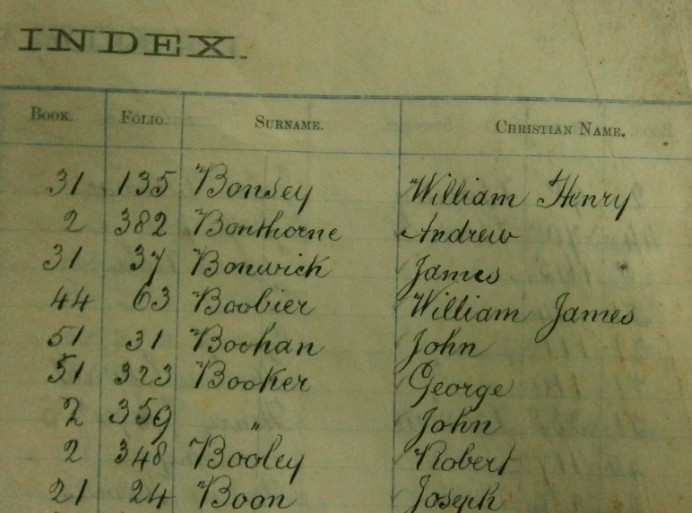 INDEX.
BOOK. FOLIO. SURNAME. CHRISTIAN NAME.
31 135 Bonsey William Henry
2 382 Bonthorne Andrew
31 37 Bonwick James
44 63 Boobier William James
51 31 Boohan John
51 323 Booker George
2 359 " John
2 348 Booley Robert
21 24 Boon Joseph